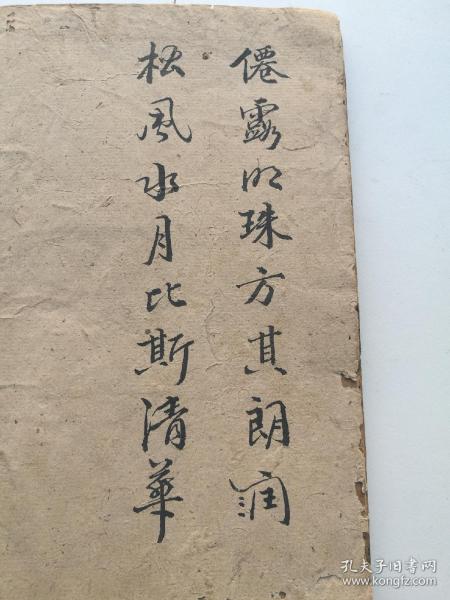 僊露明珠方其朗潤
松風水月比斯清華
孔夫子旧书网
www.kongfz.com